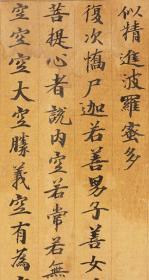 似精進波羅蜜多
復次憍尸迦若善男子善女
菩提心者說內空若常若無
空空空大空勝義空有為